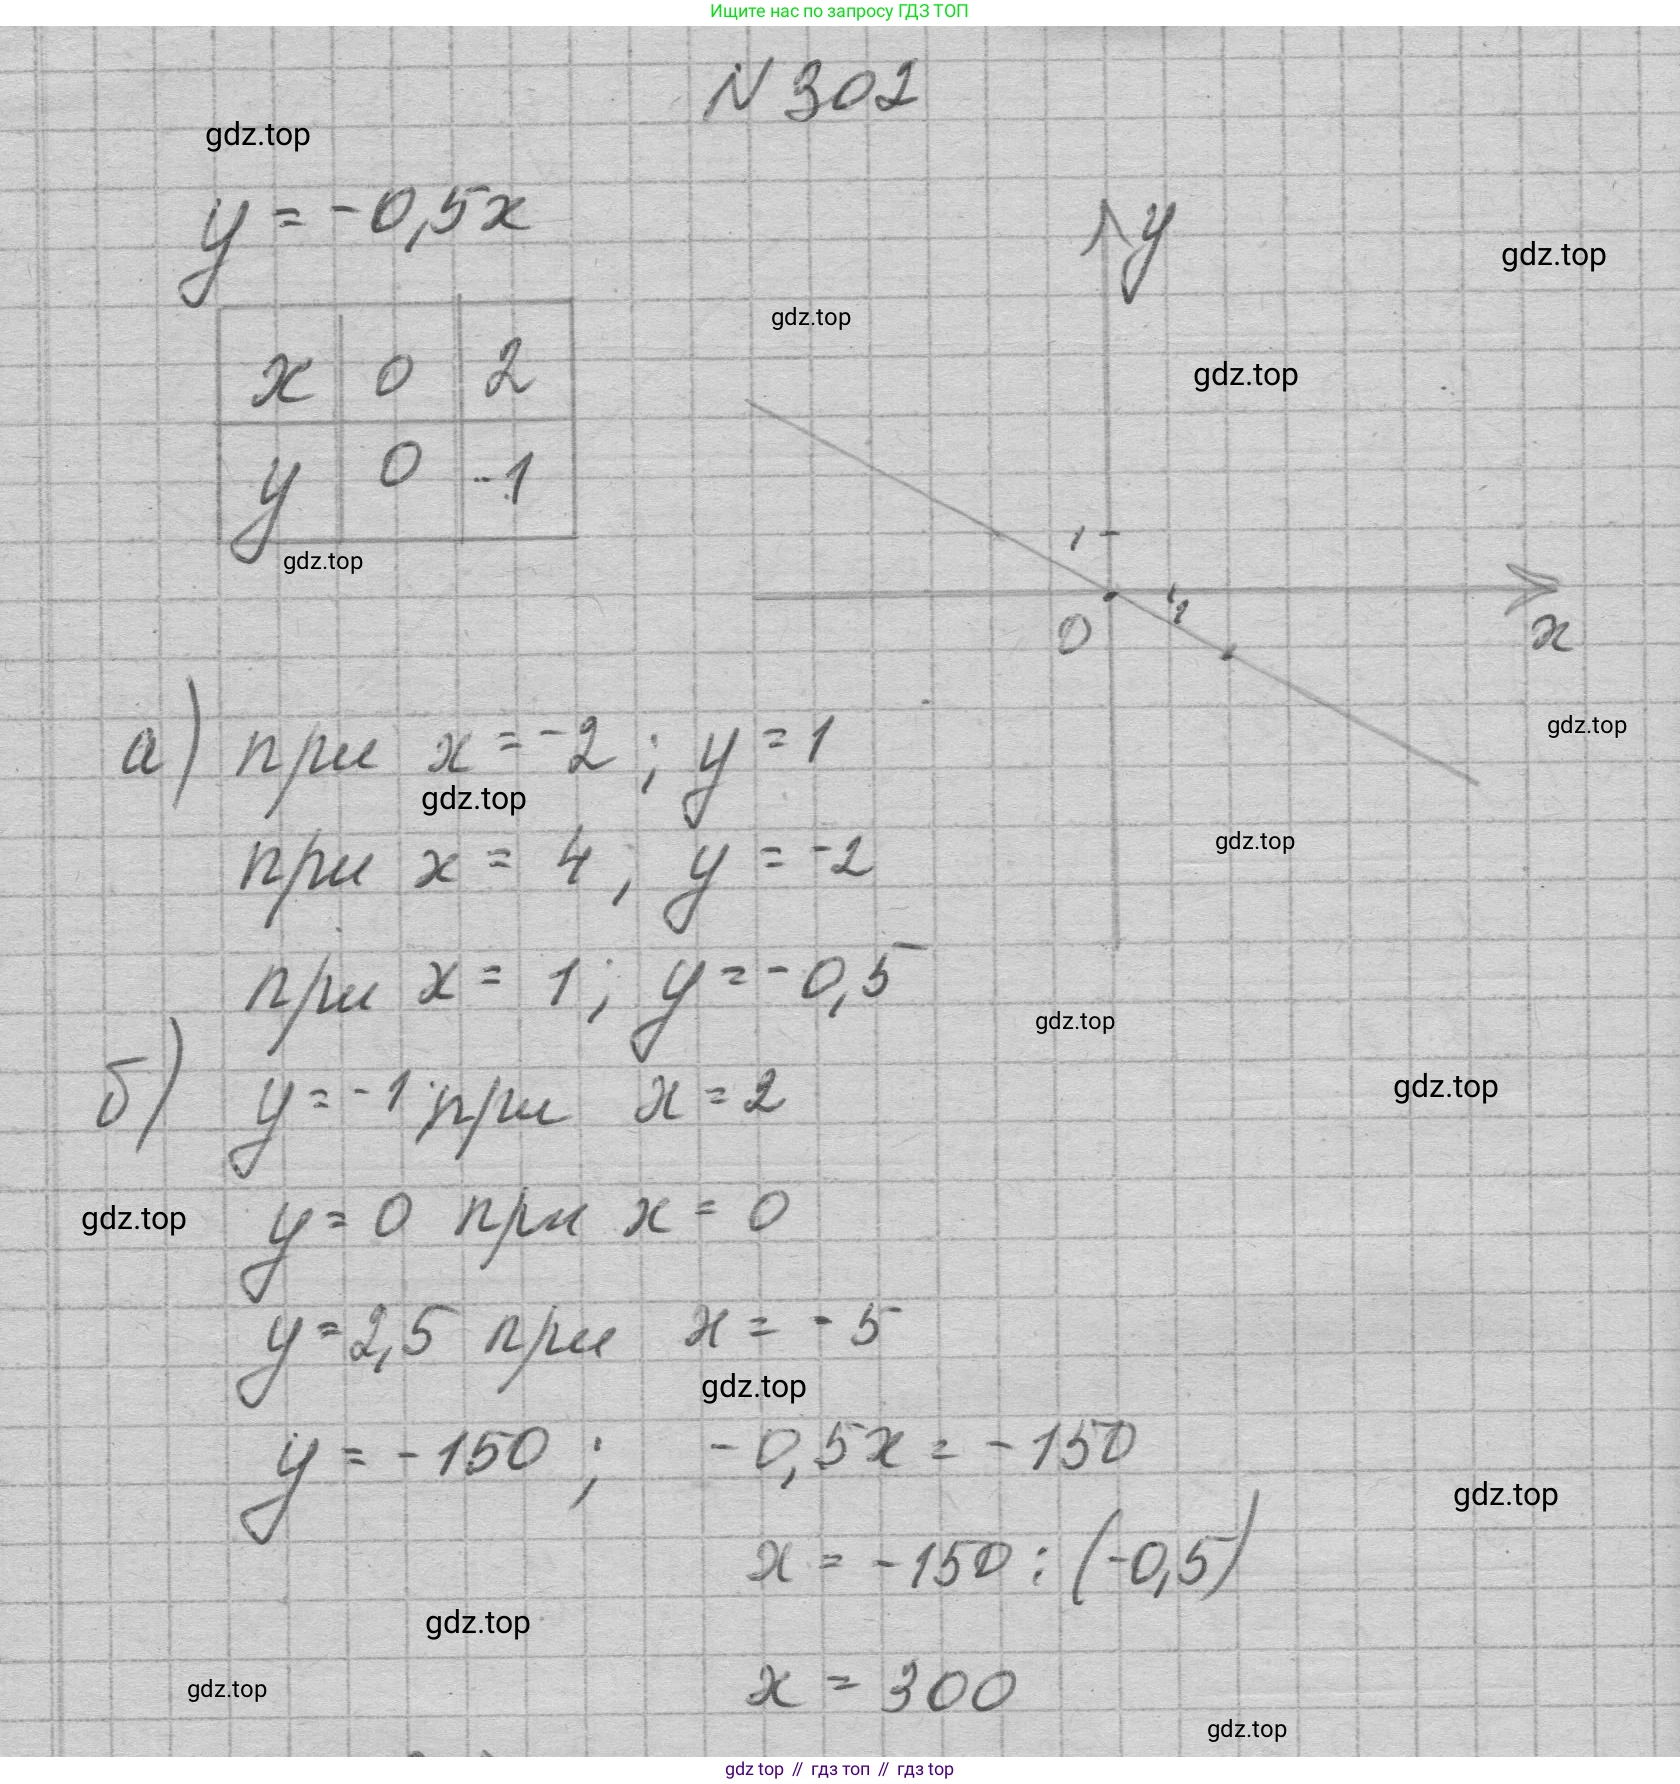 Ищите нас по запросу ГДЗ ТОП
N 302
gdz.top
y = -0,5x
y
gdz.top
gdz.top
gdz.top
x 0 2
y 0 -1
gdz.top
1
0
1
x
gdz.top
а) при x = -2 ; y = 1
gdz.top
gdz.top
при x = 4 ; y = -2
при x = 1 ; y = -0,5
gdz.top
б) y = -1 при x = 2
gdz.top
gdz.top
y = 0 при x = 0
y = 2,5 при x = -5
gdz.top
y = -150 ; -0,5x = -150
gdz.top
x = -150 : (-0,5)
gdz.top
gdz.top
x = 300
gdz.top
gdz top // гдз топ // гдз top